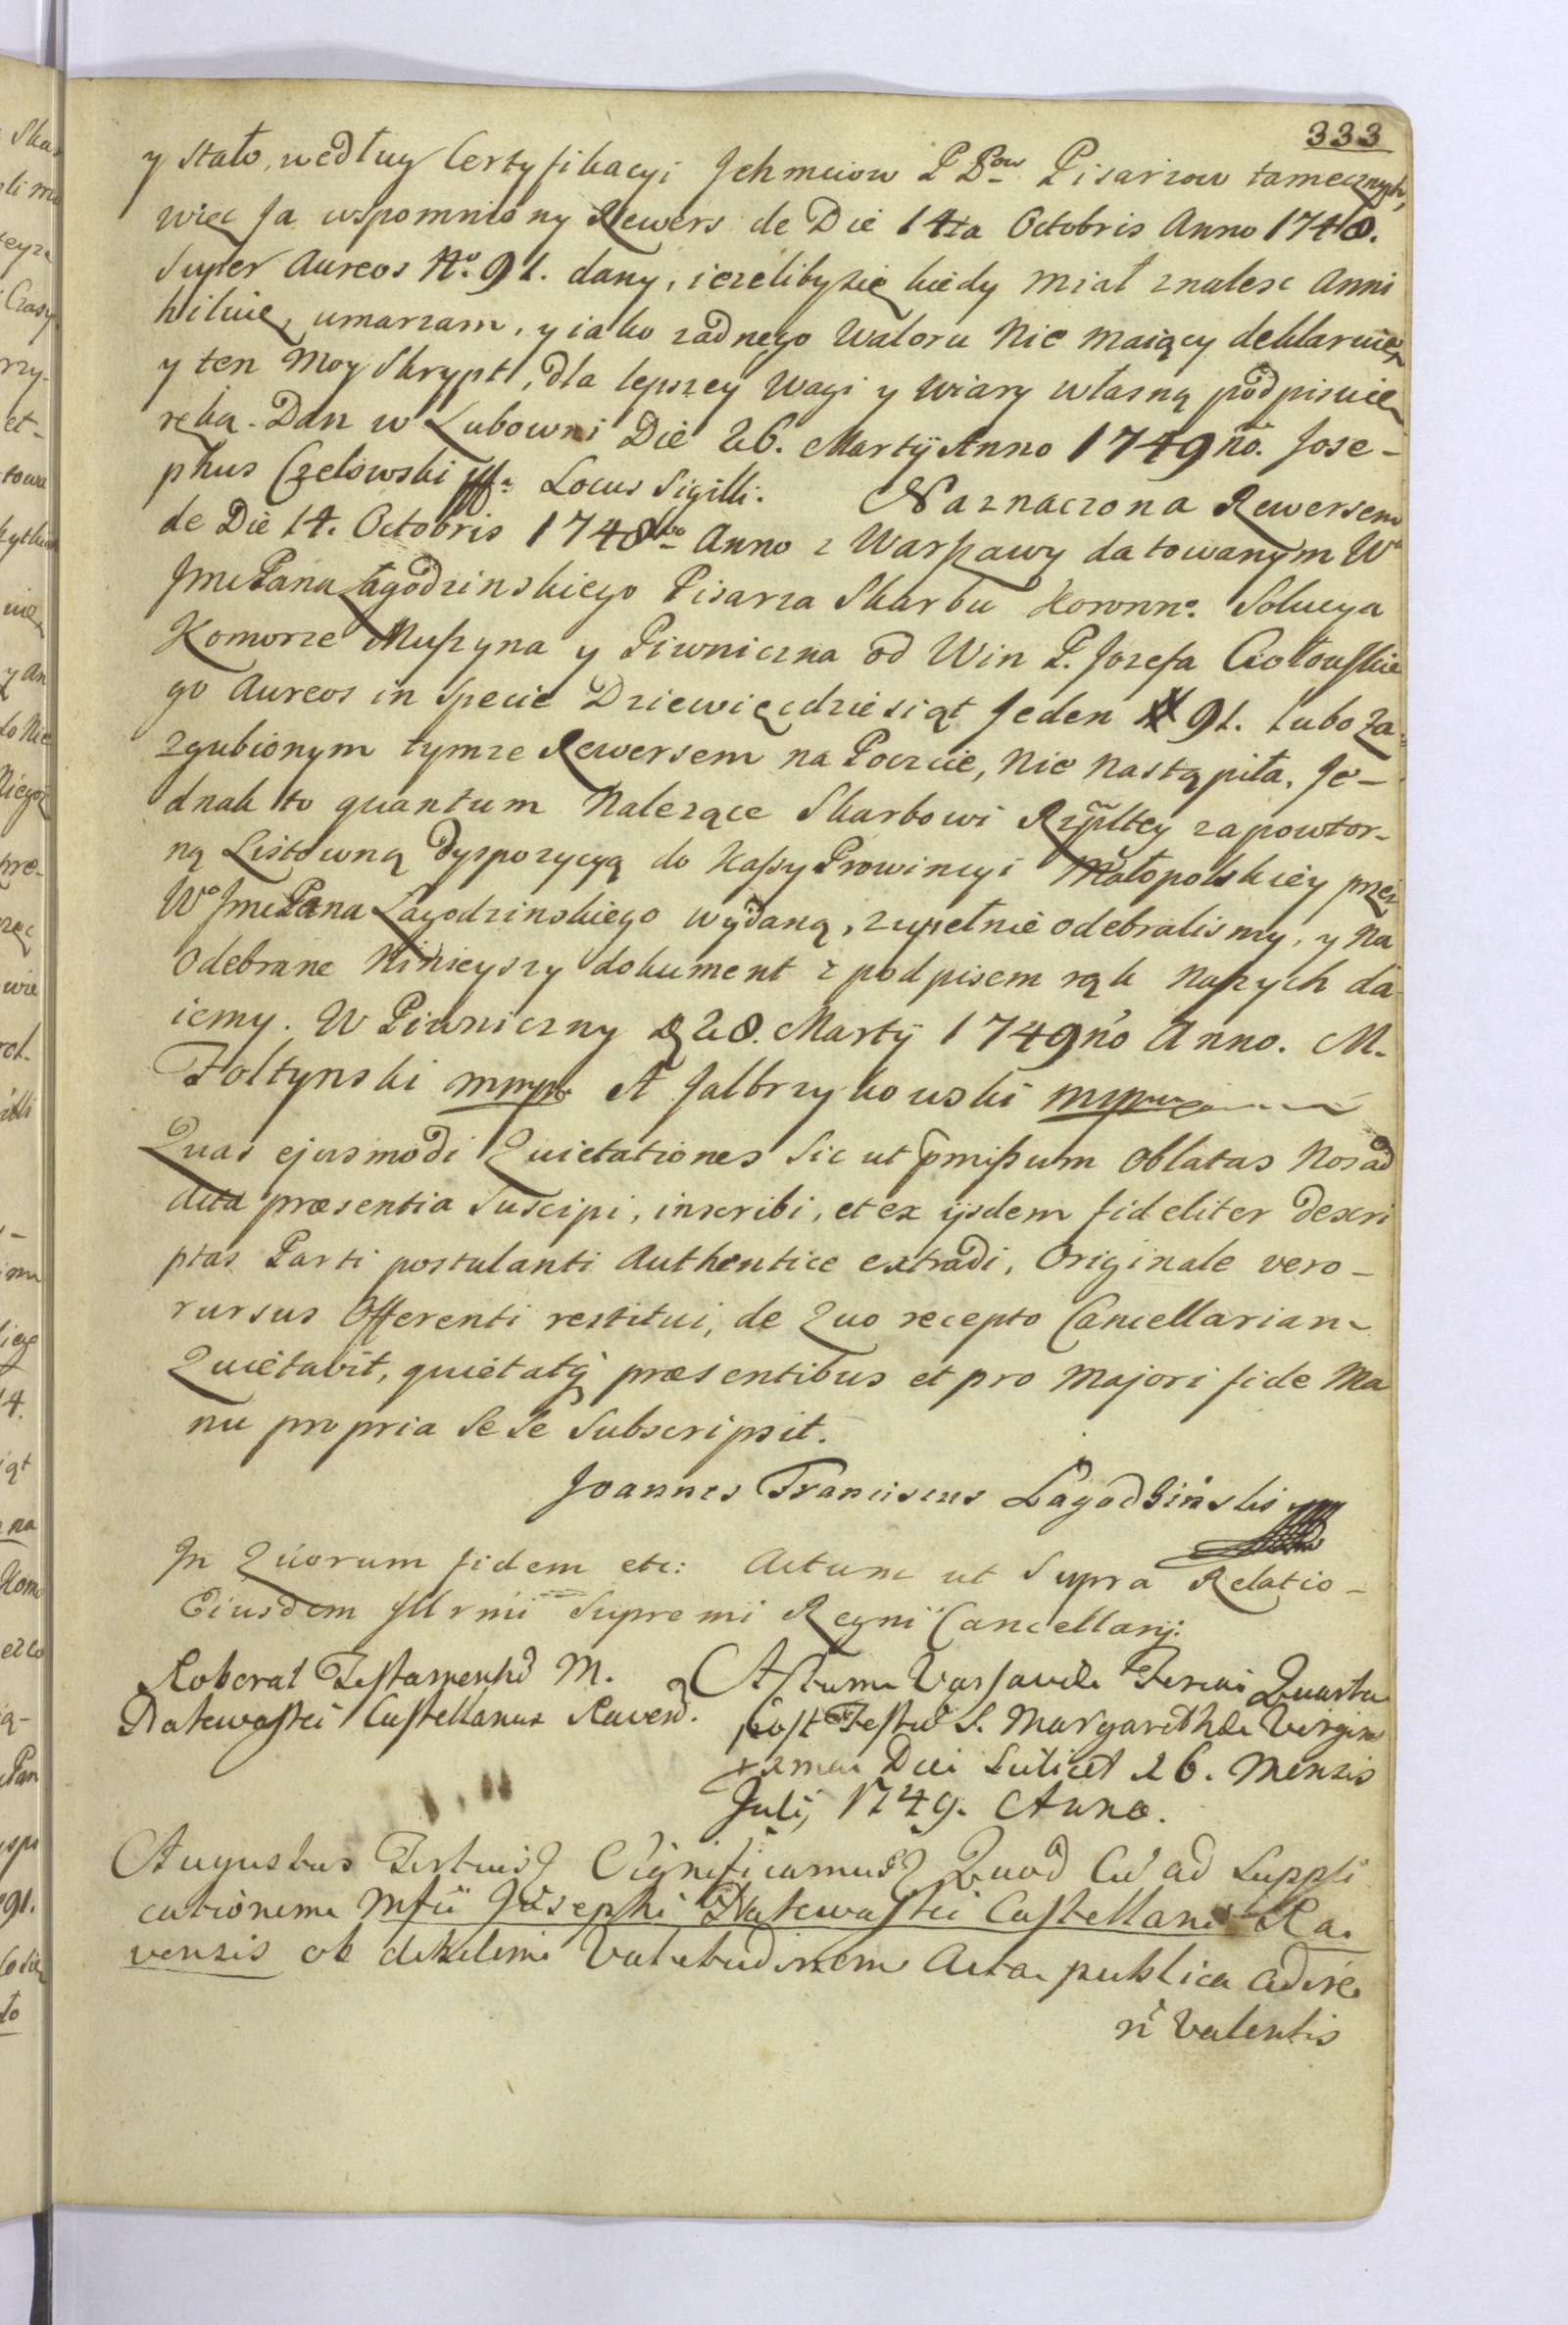 333
y stało, według Certyfikacyi Jchmciow P Pow Pisarzow tamecznych,
więc Ja wspomniony Rewers de Die 14ta Octobris Anno 1748.
Super Aureos No. 91. dany, iezeliby się kiedy miał znalesc Anni
hiluię, umarzam, y iako zadnego Waloru Nie maiący deklaruię,
y ten Moy Skrypt, dla lepszey Wagi y Wiary własną podpisuię
ręką. Dan w Lubowni Die 26. Martÿ Anno 1749no. Jose-
phus Czelowski Locus Sigilli. Naznaczona Rewersem
de Die 14. Octobris 1748vo Anno z Warszawy datowanym Wo
JmcPana Łagodzinskiego Pisarza Skarbu Koronno. Solucya
Komorze Muszyna y Piwniczna od Win P. Jozefa Ciołouskie
go Aureos in Specie Dziewięcdziesiąt Jeden 91. lubo za
zgubionym tymze Rewersem na Poczcie, Nie Nastąpiła. Je-
dnak to quantum Nalezące Skarbowi Rzpltey zapowtor-
ną Listowną Dyspozycyą do Kassy Prowincyi Małopolskiey przez
Wo JmcPana Łagodzinskiego wydaną, zupełnie odebralismy, y Na
Odebrane Ninieyszy dokument z podpisem rąk Naszych da
iemy. W Piwniczny D 28. Martÿ 1749no Anno. M.
Foltynski mppr A Jalbrzykowski mppr
Quas ejusmodi Quietationes Sic ut pmissum Oblatas Nos ad
Acta præsentia Suscipi, inscribi, et ex ijsdem fideliter Descri
ptas Parti postulanti Authentice extradi, Originale vero-
rursus Offerenti restitui, de Quo recepto Cancellariam
Quietavit, quietatq præsentibus et pro Majori fide Ma
nu propria Se Se Subscripsit.
Joannes Franciscus Łagodzinski
In Quorum fidem etc: Actum ut Supra Relatio-
Ejusdem Jllrmi Supremi Regni Cancellarij:
Roborat Testamentu M.
Nakwaski Castellanus Ravens.
Actum Varsaviæ Feria Quarta
post Festu S. Margarethæ Virginis
Die Scilicet 26. Mensis
Julij 1749. Anno.
Augustus Tertius Significamus Quod Cu ad Suppli
cationem Mfci Josephi Nakwaski Castellani Ra
vensis ob debilem Valetudinem Acta publica adire
n Valentis